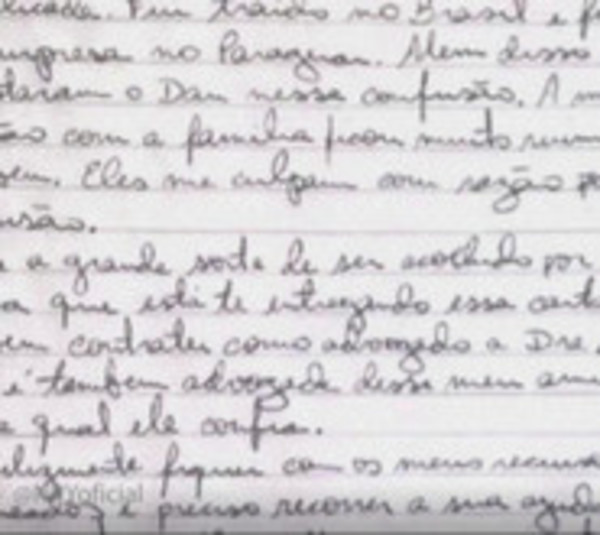 licada. Fui traído no Brasil e f
impresa no Paraguai. Alem disso
taram o Dan nessa confusão. A
ão com a familia ficou muito ruim
sem. Eles me culpam com razão po
usão.
a grande sorte de ser acolhido por
a que está te entregando essa carta
em contratei como advogado a Dra.
é também advogada desse meu ami
a qual ele confia.
elizmente fiquei com os meus recurso
e preciso recorrer a sua ajuda
oficial